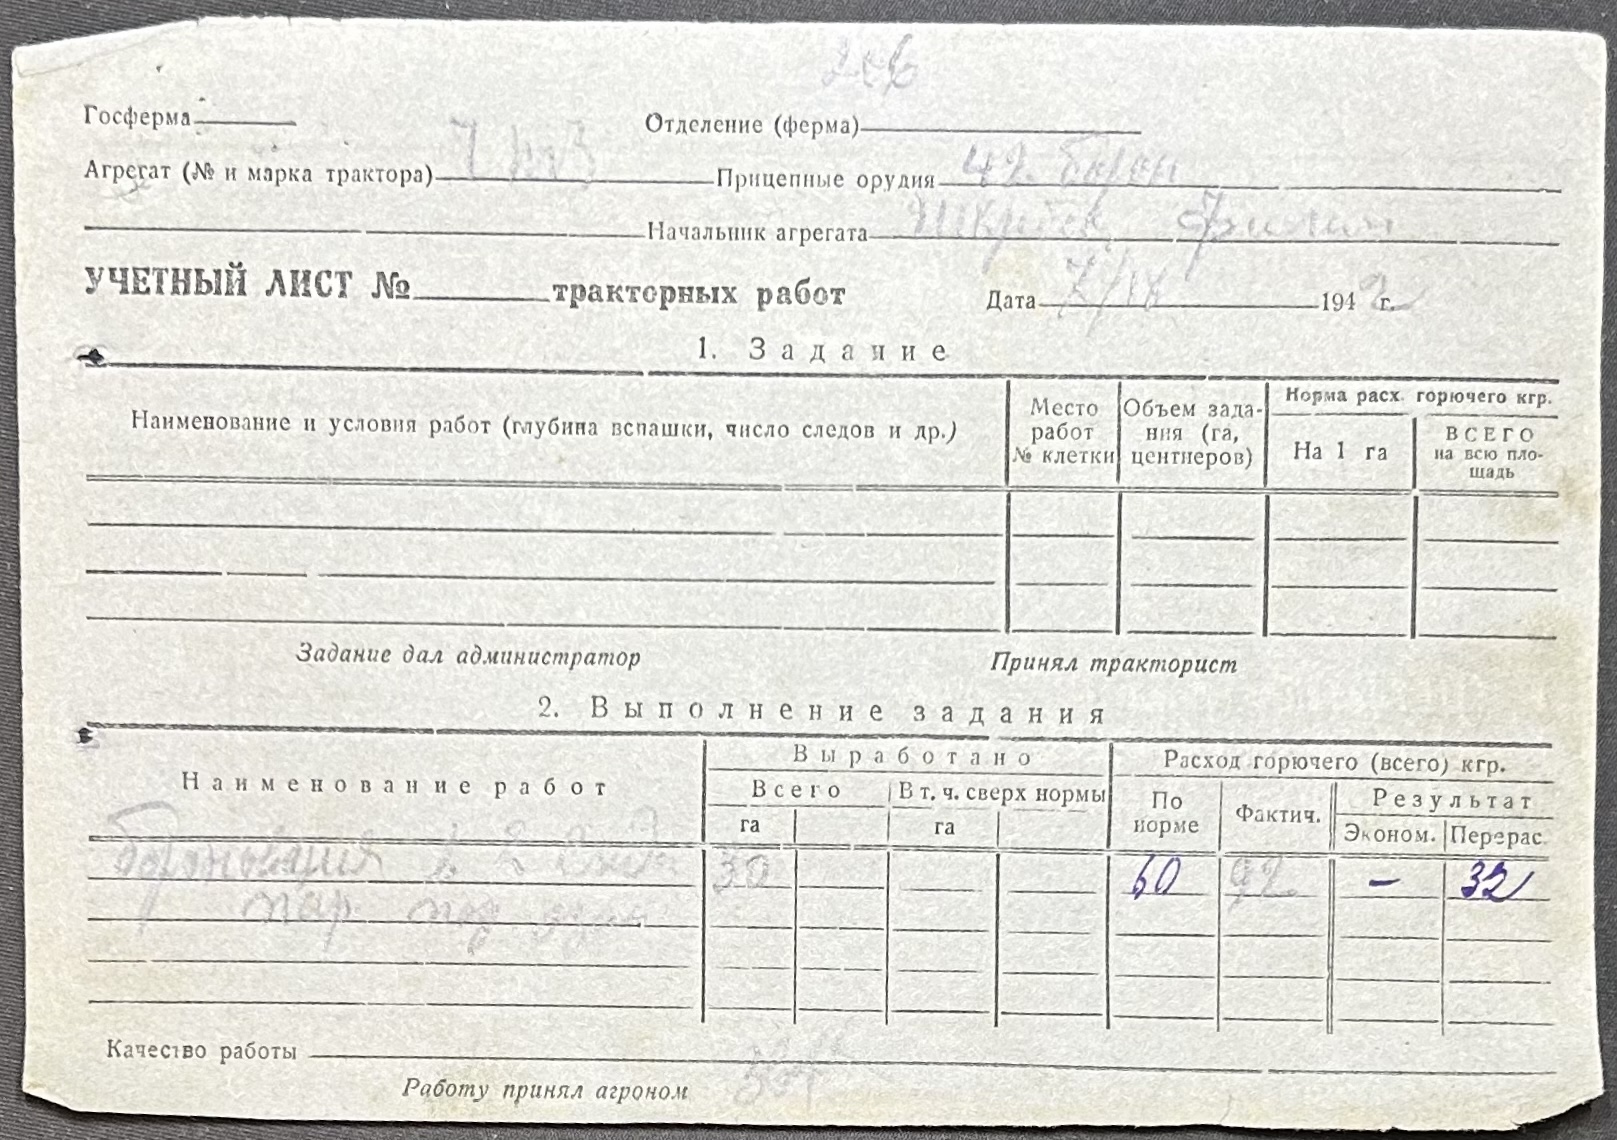 Госферма Отделение (ферма)
Агрегат (№ и марка трактора) Прицепные орудия 42 борон
Начальник агрегата
УЧЕТНЫЙ ЛИСТ № тракторных работ Дата 7/IX 1942 г.
1. Задание
Наименование и условия работ (глубина вспашки, число следов и др.) Место работ № клетки Объем зада-ния (га, центнеров) Норма расх. горючего кгр.
На 1 га ВСЕГО на всю пло-щадь
Задание дал администратор Принял тракторист
2. Выполнение задания
Наименование работ Выработано Расход горючего (всего) кгр.
Всего В т. ч. сверх нормы По норме Фактич. Результат
га га Эконом. Перерас.
в 2 30 60 92 – 32
пар под
Качество работы
Работу принял агроном